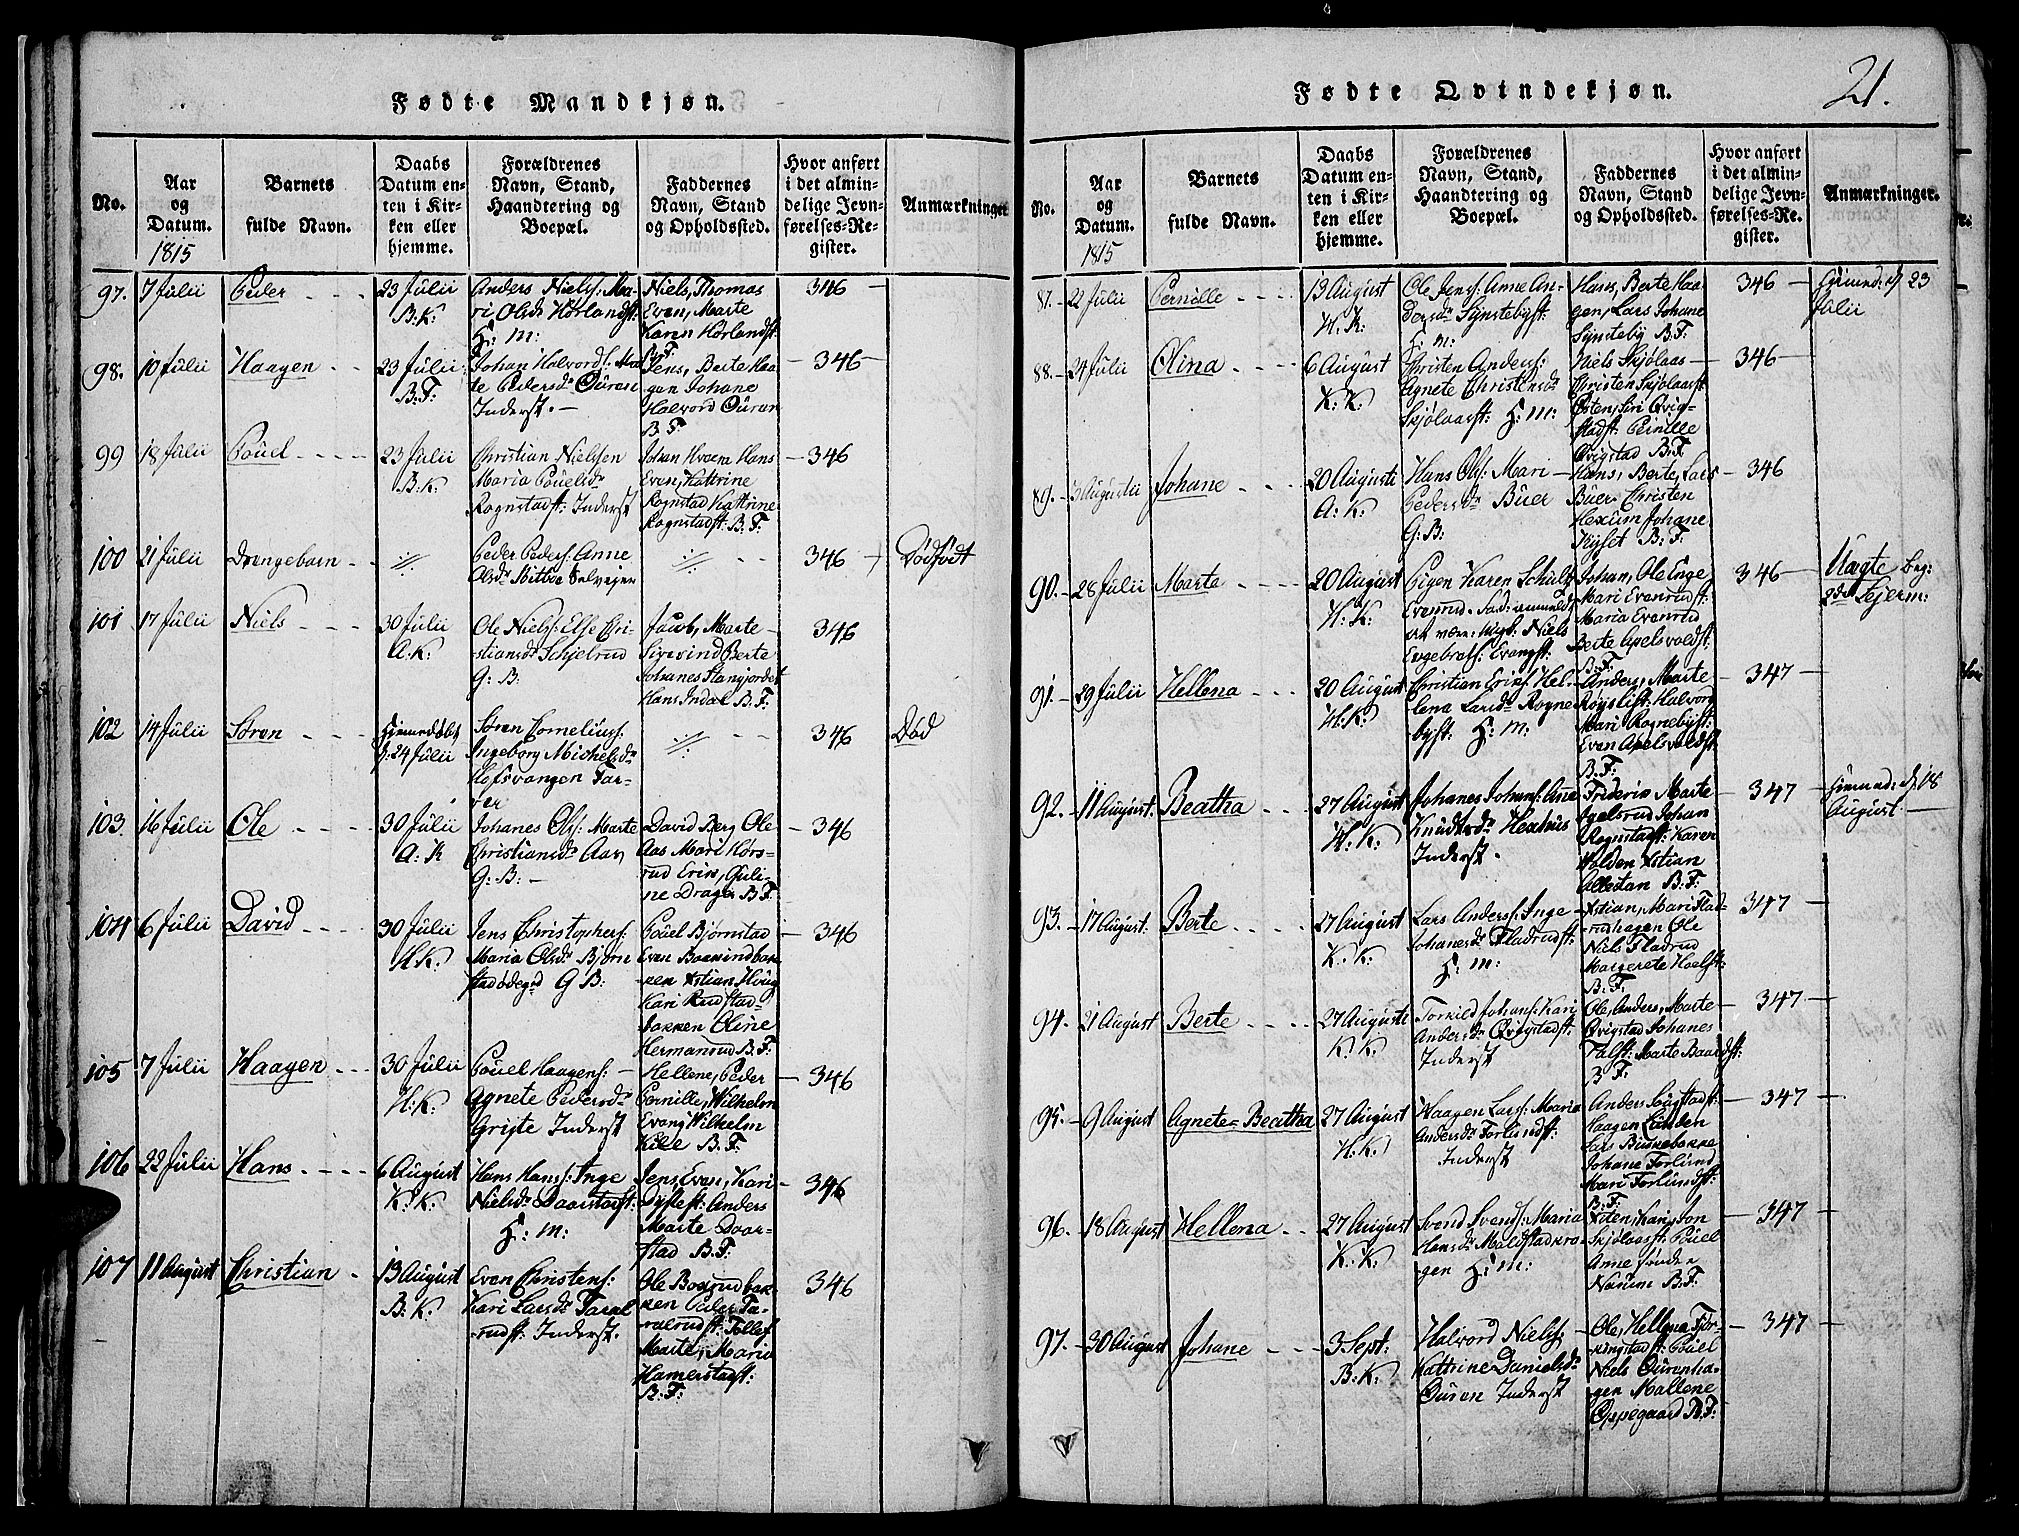 Fødte Mandkjøn.
No.
Aar
og
Datum.
1815
Barnets
fulde Navn.
Daabs
Datum en-
ten i Kir-
ken eller
hjemme.
Forældrenes
Navn, Stand,
Haandtering og
Boepæl.
Faddernes
Navn, Stand
og Opholdssted.
Hvor anført
i det almin-
delige Jevn-
førelses-Re-
gister.
Anmærkninger
97. 7 Julii Peder 23 Julii
B: K:
Anders Niels: Ma-
ri Olsdr Hörlandst:
H: m:
Niels, Thomas
Even, Marte
Karen Hörlandst:
B.F.
346
98. 10 Julii Haagen 23 Julii
B: F:
Johan Halvords: Mar-
te Pedersdr Ouren
Inderst.
Jens, Berte Haa-
gen Johane
Halvord Ouren
B F
346
99 18 Julii Pouel 23 Julii
B: K:
Christian Nielsen
Maria Pouelsdr
Rognstadst: Inderst
Johan Hvaera Hans
Even, Kattrine
Rognstad Kattrine
Rognstadst: B. F.
346
100 21 Julii Drengebarn
Peder Peders: Anne
Olsdr Mitbøe Selvejer
346
Dödfödt
101 17 Julii Niels 30 Julii
A: K:
Ole Niels: Else Chri-
stiansdr Schjelrud
G: B:
Jacob, Marte
Sigevind Berte
Johanes Stangjordet
Hans Indal B. F:
346
102 14 Julii Søren Hjemmedöbt
d: 24 Julii
Søren Cornelius:
Ingeborg Michelsdr
Hofsvangen Far-
ver
346
Död
103. 16 Julii Ole 30 Julii
A: K
Johanes Ols: Marte
Christiansdr Aas
G: B:
David Berg Ole
Aas Mari Kors-
rud Erik, Guli-
ne Drager B. F.
346
104 6 Julii David 30 Julii
H: K:
Jens Christophers:
Maria Olsdr Björn
stadödegd G B:
Pouel Bjørnstad
Even
ken Xstian Houg
Kari Rudstad-
bakken Oline
Hermanrud B: F:
346
105 7 Julii Haagen 30 Julii
H: K:
Pouel Haagens:
Agnete Pedersdr
Griste Inderst
Hellene, Peder
Pernille, Wilhelm
Evang Wilhelm
Kile B. F.
346
106 22 Julii Hans 6 August
K: K:
Hans Hans: Inge
Nielsdr Daarstadst:
H: m:
Jens, Even, Kari
Dystest: Anders
Marte Daar-
stad B. F:
346
107 11 August Christian 13 August
B: K:
Even Christens:
Kari Larsdr Taral
-rudst: Inderst.
Ole Boxrud bak-
ken Peder Ta-
ralrudst: Tollef
Marte, Maria
Hamerstadst:
B: F:
346
Fødte Qvindekjøn.
21.
No.
Aar
og
Datum.
1815
Barnets
fulde Navn.
Daabs
Datum en-
ten i Kir-
ken eller
hjemme.
Forældrenes
Navn, Stand,
Haandtering og
Boepæl.
Faddernes
Navn, Stand
og Opholdssted.
Hvor anført
i det almin-
delige Jevn-
førelses-Re-
gister.
Anmærkninger.
87. 22 Julii Pernille 13 August
H. K:
Ole Jens: Anne An-
dersdr Synstebyst:
H: m:
Hans, Berte Haa-
gen, Lars Johane
Synsteby B. F:
346
Hjemmed: d 23
Julii
88. 24 Julii Olina 6 August
K: K:
Christen Anders:
Agnete Christensdr
Skjölaasst: H: m:
Niels Skjölaas
Christen Skjölaasst
Østen, Siri Qvig-
stadst: Pernille
Qvigstad B. F.
346
89. 3 Augustii Johane 20 August
A: K:
Hans Ols: Mari
Pedersdr Büer
G: B:
Hans, Berte, Lars
Büer Christen
Hexum Johane
Kyset B: F:
346
90. 28 Julii Marta 20 August
H: K:
Pigen Karen Schult
Evenrud. Fad: anmeldt
at være: Ungk: Niels
Engebrets: Evangst:
Johan, Ole Enge
Mari Evenrudst:
Maria Evenrud
Berte Apelsvoldst:
B. F:
346
Uægte beg:
2des Lejerm:
91. 29 Julii Hellena 20 August
H: K:
Christian Eriks: Hel-
lena Larsdr Rogne
byst: H: m:
Anders, Marte
Røyslist: Halvord
Mari Rognebyst:
Even Apelsvoldst:
B. F:
347
92. 11 August: Beatha 27 August
H: K:
Johanes Johans: Ane
Knudsdr Hexhus
Inderst.
Friderix Marte
Apelsrud Johan
Rognstadst: Karen
Holden Xstian
Allestan B: F:
347
Hjemmed: d 18
August
93. 17 August: Berte 27 August
K. K:
Lars Anders: Inge
Johanesdr Fladrudst:
H: m:
Xstian, Mari Flad-
rudhagen Ole
Niels Fladrud
Margrete Hoelst:
B: F:
347
94. 21 August Berte 27 August
K: K:
Torkild Johans: Kari
Andersdr Qvigstadst:
Inderst
Ole, Anders, Marte
Qvigstad Johanes
Falst: Marte Baardst:
B F:
347
95. 9 August Agnete-Beatha 27 August
H: K:
Haagen Lars: Maria
Andersdr Forlundst:
Inderst
Anders Sougstadst:
Haagen Lunden
Lars Buskebakke
Johane Forlund
Mari Forlundst:
B. F:
347
96. 18 August Hellena 27 August
K: K:
Svend Svens: Maria
Hansdr Maldstadkra-
gen H: m:
Xsten, Kari, Jon
Skjölaasst: Pouel
Anne söndre
Narum B. F:
347
97. 30 August Johane 3 Sept:
B: K:
Halvord Niels:
Kattrine Danielsdr
Ouren Inderst
Ole, Hellena Fjör-
kingstadst: Pouel
Niels Ourenha-
gen Mallene
Oppegaard B. F:
347